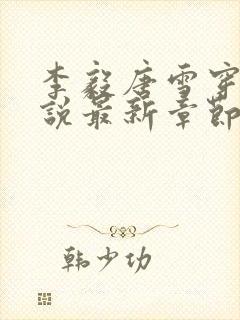 李毅唐雪穿
説最新章節
韩少功